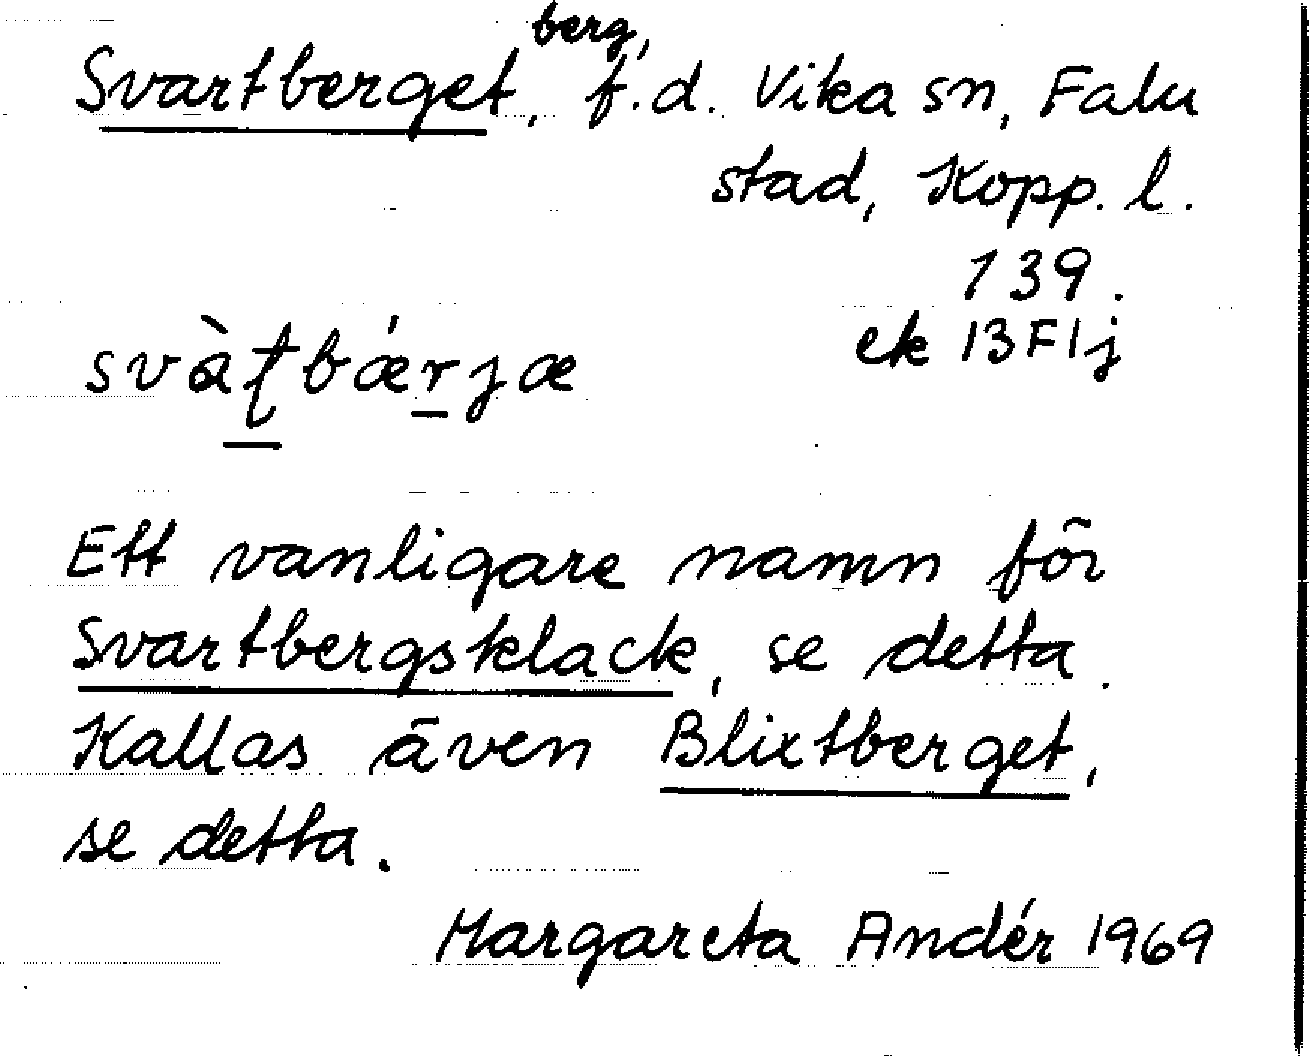 Svartberget, berg, f.d. Vika sn, Falu
stad, Kopp. l.
139.
ek 13F1j
svàʈbǽrjæ
Ett vanligare namn för
Svartbergsklack, se detta.
Kallas även Blixtberget,
se detta.
Margareta Andér 1969